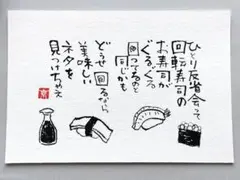 ひとり反省会って
回転寿司の
お寿司が
ぐるぐる
回ってるのと
同じかも
どうせ回るなら、
美味しい
ネタを
見つけちゃえ